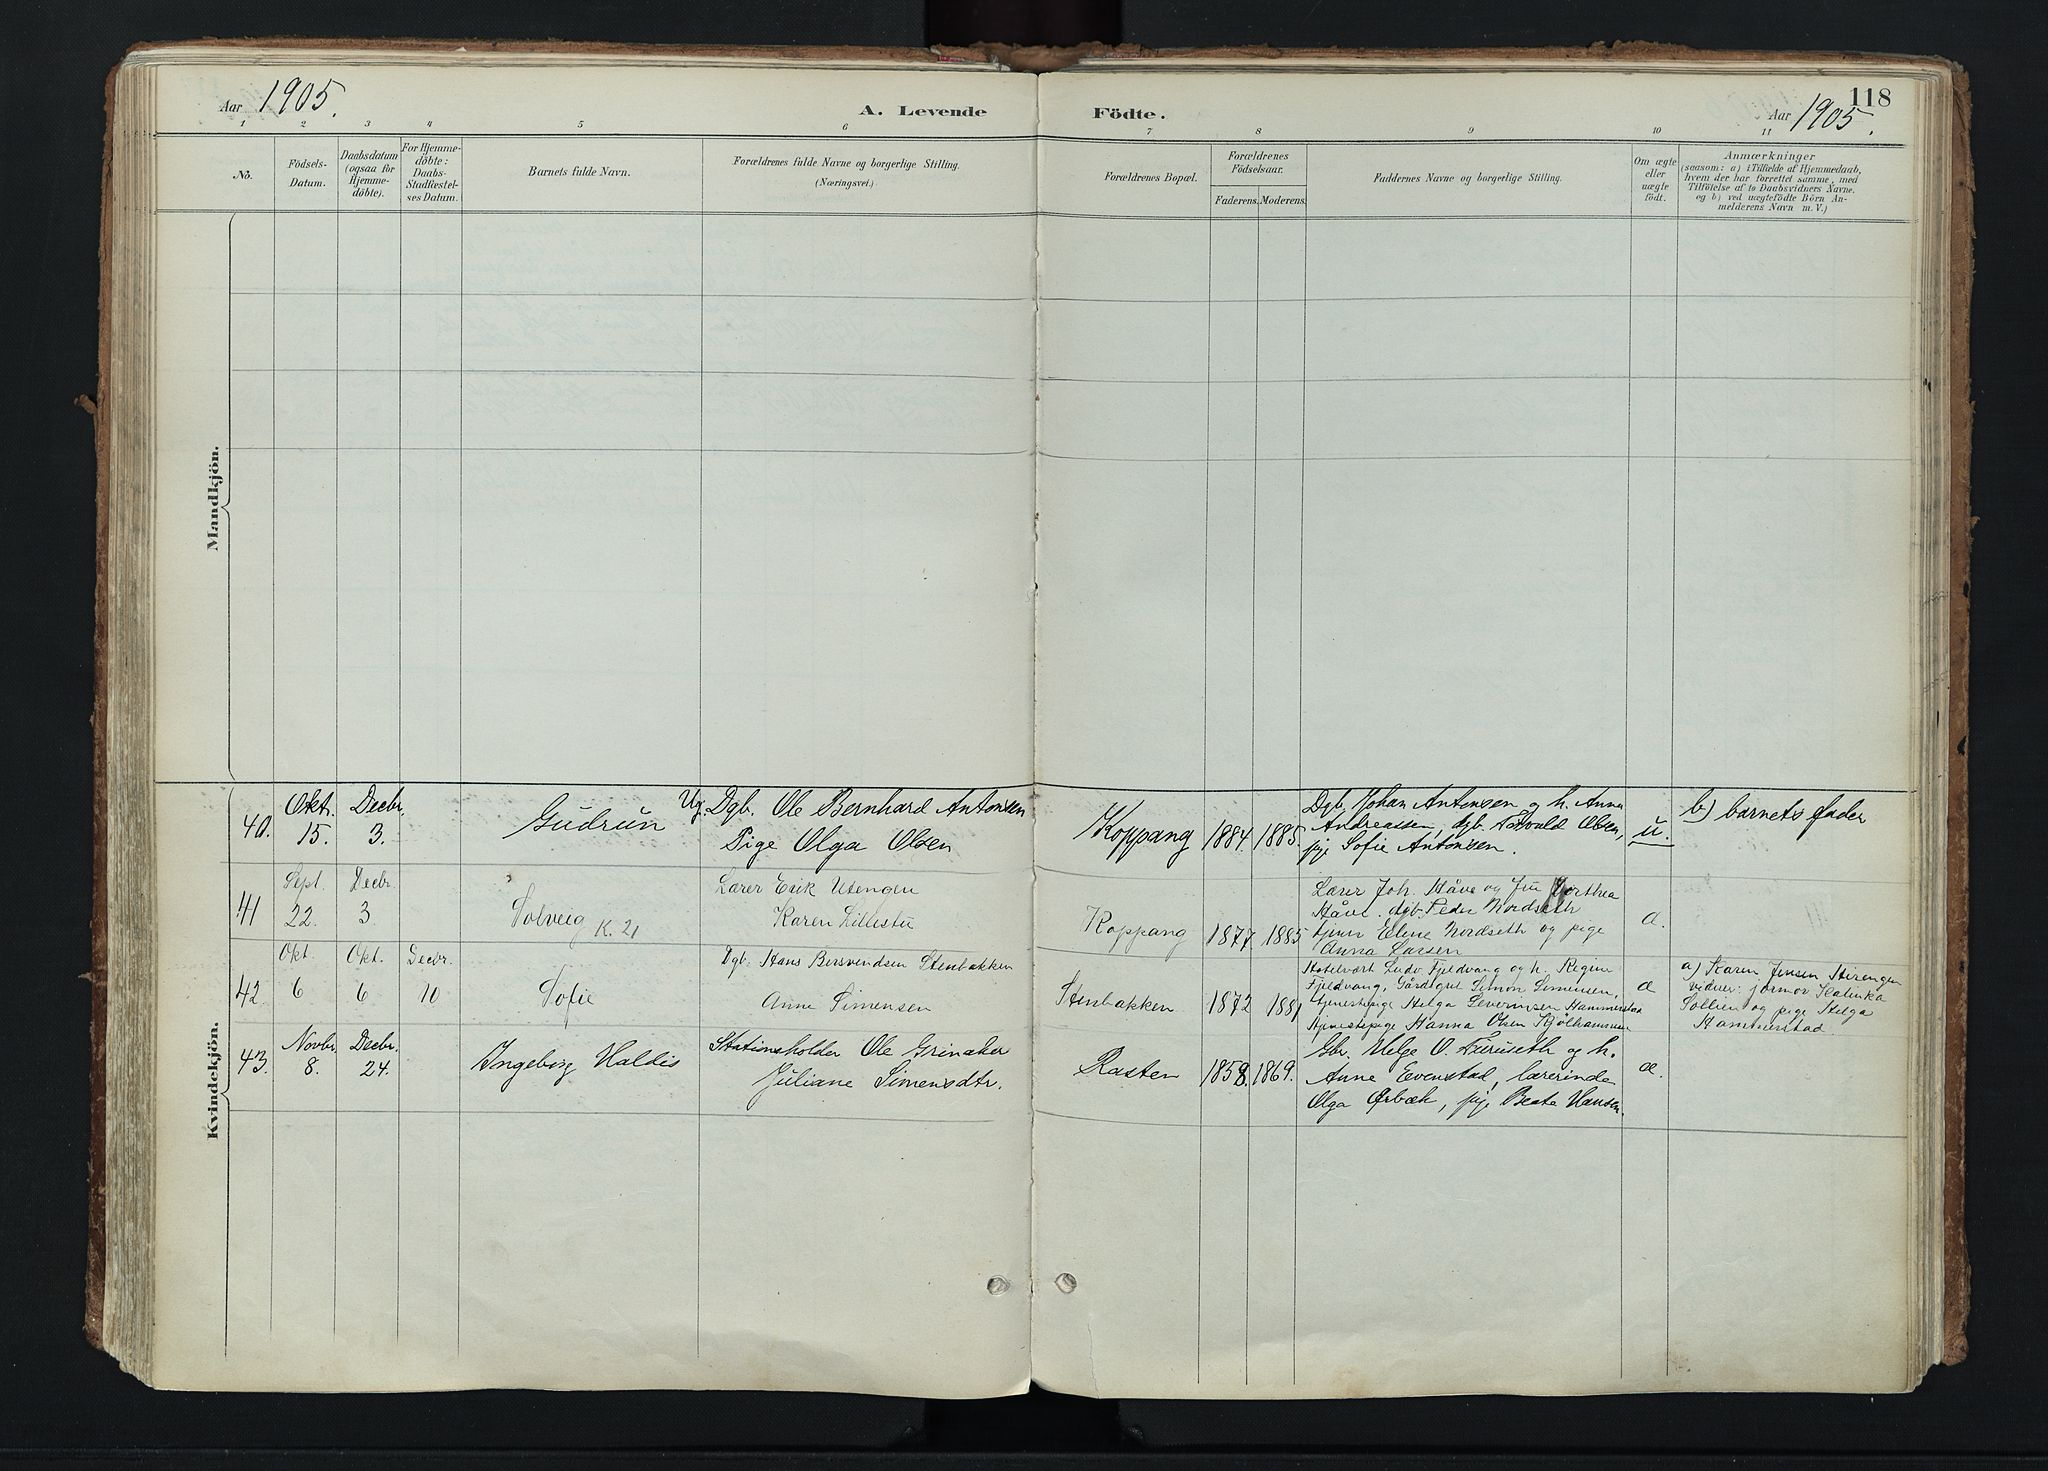 Aar 1905.
A. Levende Födte.
118
Aar 1905.
1 2 3 4 5 6 7 8 9 10 11
No.
Födsels-
Datum.
Daabsdatum
(ogsaa for
Hjemme-
döbte).
For Hjemme-
döbte:
Daabs-
Stadfæstel-
ses Datum.
Barnets fulde Navn.
Forældrenes fulde Navne og borgerlige Stilling.
(Næringsvei.)
Forældrenes Bopæl.
Forældrenes
Födselsaar.
Faderens. Moderens.
Faddernes Navne og borgerlige Stilling.
Om ægte
eller
uægte
födt.
Anmærkninger
(saasom: a) i Tilfælde af Hjemmedaab,
hvem der har forrettet samme, med
Tilföielse af to Daabsvidners Navne.
og b) ved uægtefödte Börn An-
melderens Navn m. V.)
Mandkjön.
Kvindekjön.
40.
Okt.
15.
Decbr.
3.
Gudrun
Ug. Dgb. Ole Bernhard Antonsen
Pige Olga Olsen
Koppang
1884. 1885.
Dgb. Johan Antonsen og h. Anna
Andreassen, dgb. Olsen,
pige Sofie Antonsen.
u.
b) barnets fader
41
Sept.
22.
Decbr.
3.
Solveig K. 21
Lærer Erik Utengen
Karen Lillestu
Koppang
1877 1885.
Lærer Joh. Håve og Fru Dorthea
Håve. dgb. Peder Nordseth
Elene Nordseth og pige
Anna Larsen
æ.
42.
Okt.
6
Okt.
6
Decbr.
10
Sofie
Dgb. Hans Bersvendsen Stenbakken
Anne Simensen
Stenbakken
1872 1881
Hotelvært Ludv. Fjeldvang og h. Regine
Fjeldvang, Gårdbgsl Simon Simensen,
tjenestepige Helga Severinsen Hammerstad
tjenestepige Hanna Olsen
æ
a) Karen Jensen Stirengen
vidner: jormor Katinka
Sollien og pige Helga
Hammerstad.
43.
Novbr.
8.
Decbr.
24.
Ingeborg Haldis
Stationsholder Ole Grinaker
Juliane Simensdtr.
Rasten
1858. 1869.
Gbr. Helge O. Furuseth og h.
Anne Evenstad, lærerinde
Olga Ørbæk, pige Beate Hansen.
æ.